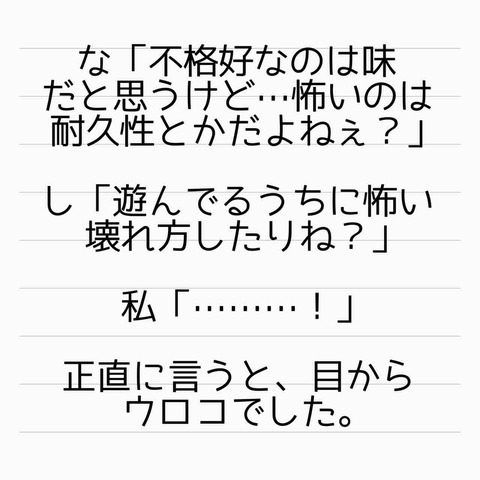 な「不格好なのは味
だと思うけど…怖いのは
耐久性とかだよねぇ？」
し「遊んでるうちに怖い
壊れ方したりね？」
私「………！」
正直に言うと、目から
ウロコでした。